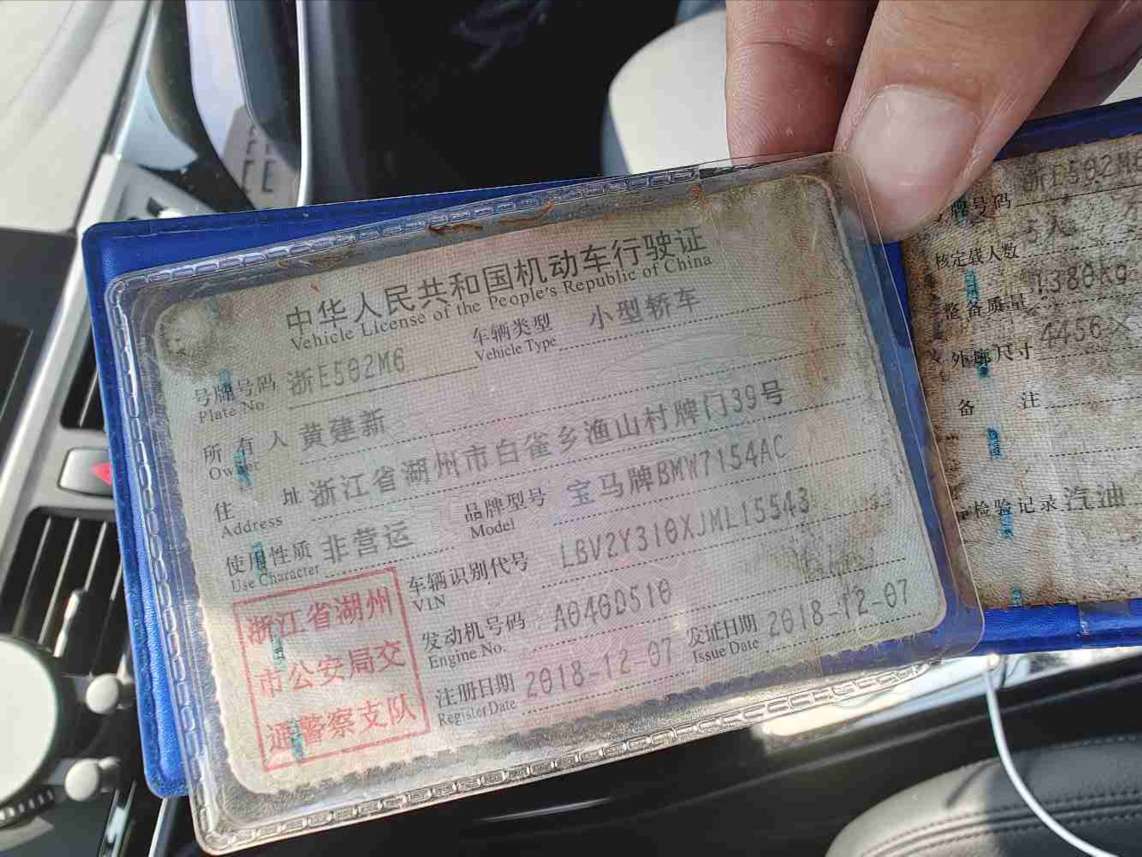 中华人民共和国机动车行驶证
Vehicle License of the People's Republic of China
号牌号码 浙E502M6 车辆类型 小型轿车
Plate No. Vehicle Type
所有人 黄建新
Owner
住址 浙江省湖州市白雀乡渔山村牌门39号
Address
使用性质 非营运 品牌型号 宝马牌BMW7154AC
Use Character Model
浙江省湖州
市公安局交
通警察支队
车辆识别代号 LBV2Y310XJML15543
VIN
发动机号码 A040D510
Engine No.
注册日期 2018-12-07 发证日期 2018-12-07
Register Date Issue Date
号牌号码 浙E502M6
核定载人数 5人
整备质量 1380kg
外廓尺寸 4456×
备注
检验记录 汽油